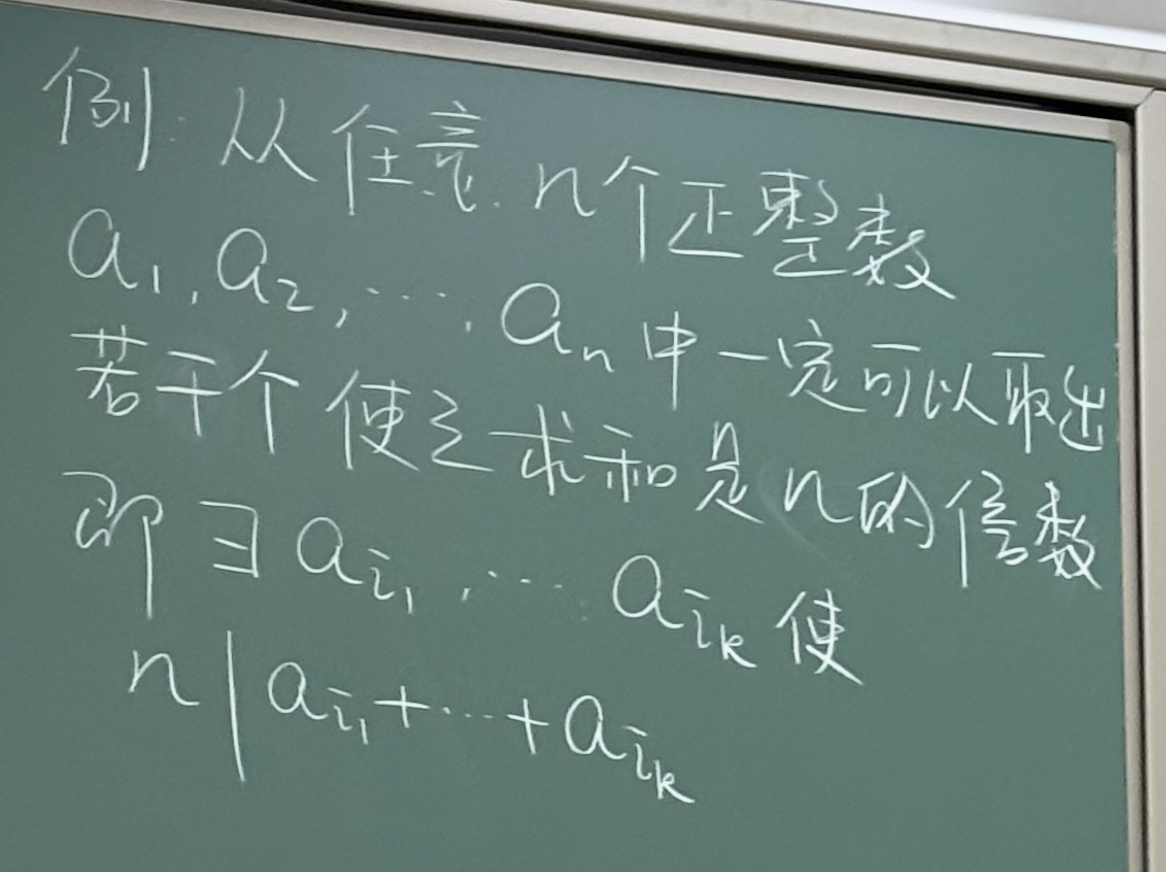 例: 从任意 n个正整数
a₁, a₂, ⋯, aₙ 中一定可以取出
若干个使之求和是n的倍数
即 ∃ a_{i₁}, ⋯ a_{i_k} 使
n | a_{i₁}+⋯+a_{i_k}